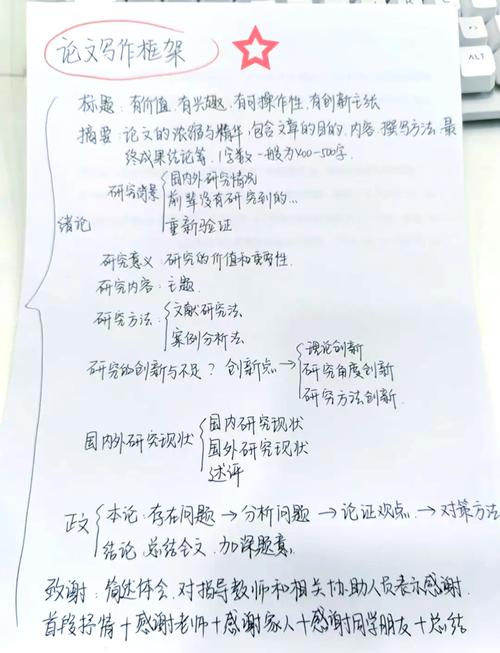 论文写作框架
标题:有价值.有兴趣.有可操作性.有创新主张
摘要:论文的浓缩与精华,包含文章的目的.内容.撰写方法.最
终成果结论等.(字数一般为400-500字.
绪论
研究背景
国内外研究情况
前辈没有研究到的...
重新验证
研究意义:研究的价值和重要性.
研究内容:主题.
研究方法:
文献研究法
案例分析法
研究的创新与不足?创新点→
理论创新
研究角度创新
研究方法创新.
国内外研究现状
国内研究现状
国外研究现状
述评
正文
本论:存在问题→分析问题→论证观点→对策方法
结论.总结全文,加深题意.
致谢:简述体会.对指导教师和相关协助人员表示感谢.
首段抒情+感谢老师+感谢家人+感谢同学朋友+总结
ALT